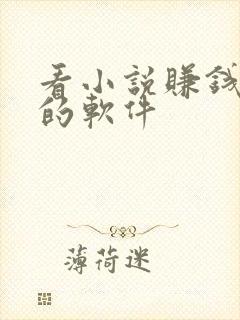 看小説賺錢
的軟件
薄荷迷